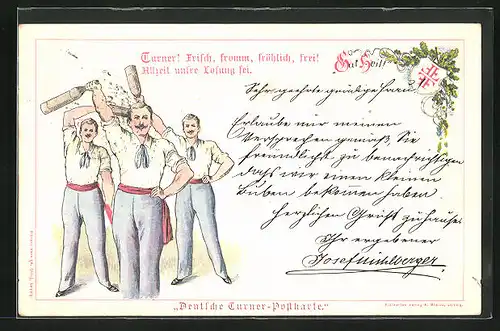 Turner! Frisch, fromm, fröhlich, frei!
Allzeit unsre Losung sei.
Gut Heil!
Sehr geehrte gnädige Frau
Erlaube mir meinem
Versprechen gemäß, Sie
freundlichst zu benachrichtigen
dass wir einen kleinen
Buben bekommen haben
Herzlichen Gruß zu hause
Ihr ergebener
Josef Mühlberger
„Deutsche Turner-Postkarte."